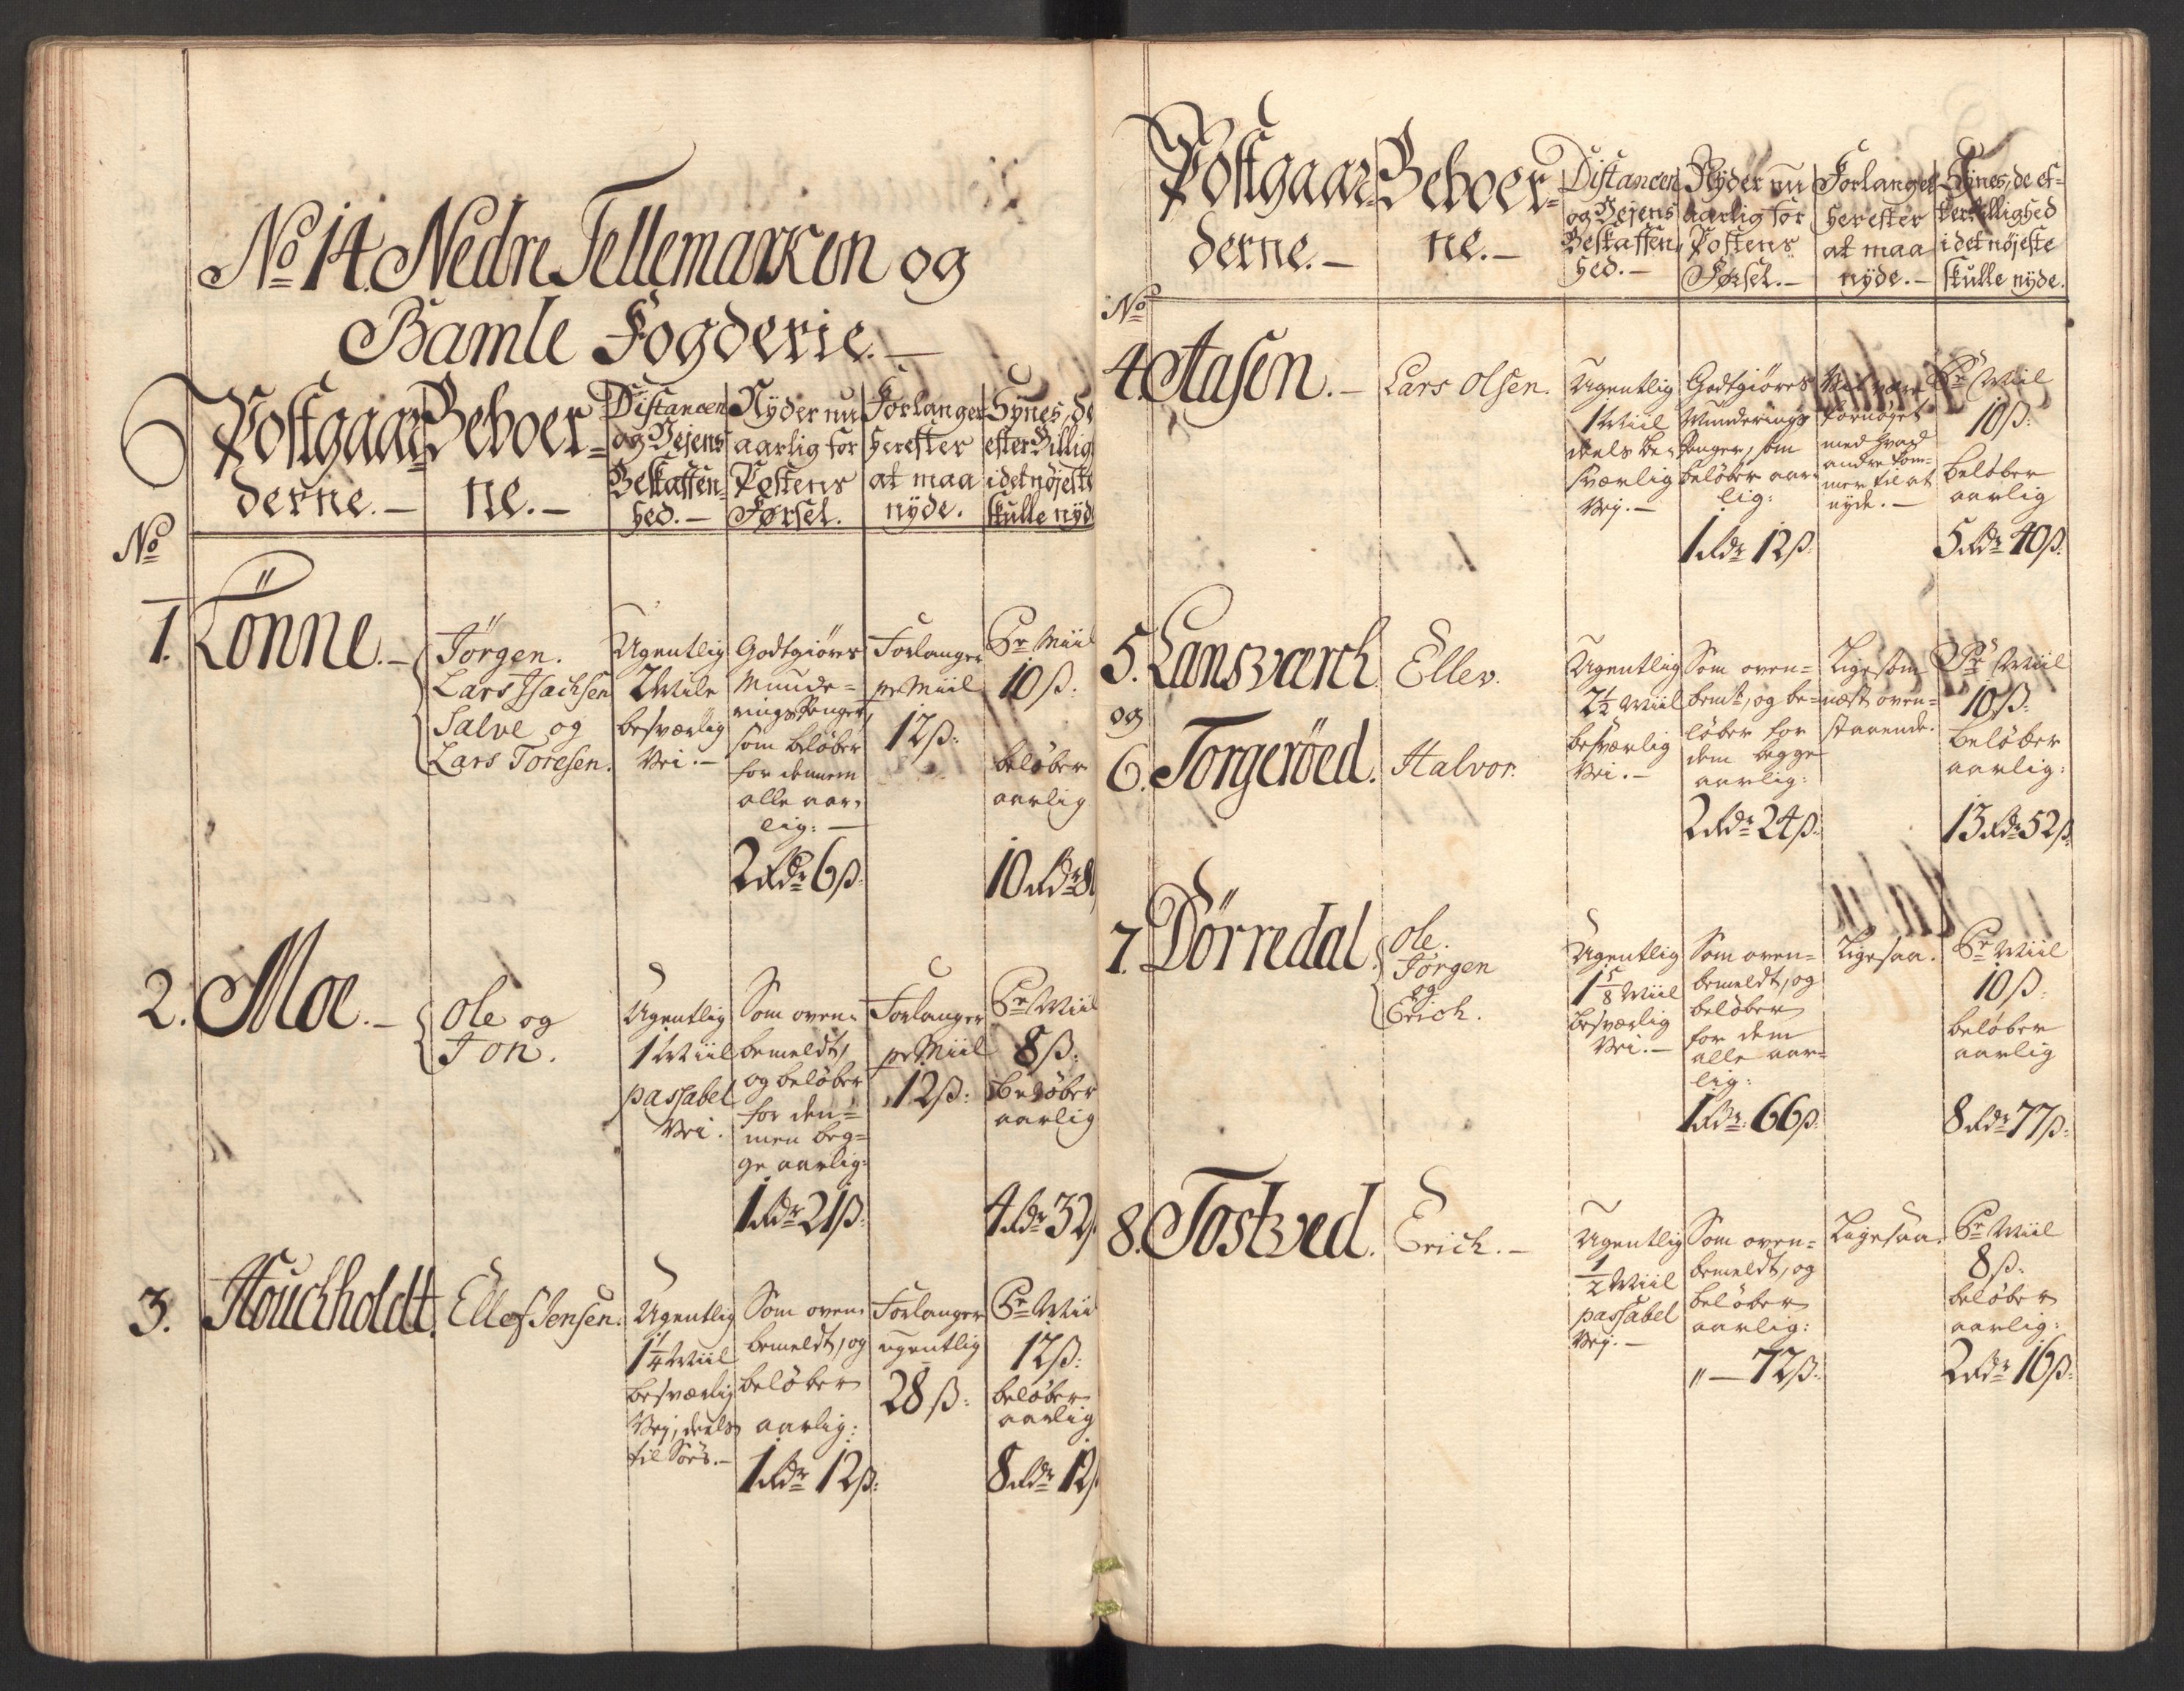 No 14. Nedre Tellemarken og
Bamle Fogderie.—
Postgaar=
derne.—
Beboer=
ne.—
Distancen
og Vejens
Beskaffen=
hed.—
Nÿder nu
aarlig for
Postens
Førsel.
Forlanger
herefter
at maa
nÿde.
Sÿnes, de
efter Billig
i det nøjeste
skulle nÿd
No
1. Tönne.—
Jörgen.
Lars Isachsen
Salve og
Lars Toresen.
Ugentlig
2 Miile
besværlig
Vei.—
Godtgiøres
Munde=
rings Penger,
som beløber
for dennem
alle aar=
lig:—
2 Rdr 6 ß.
Forlanger
pr Miil
12 ß:
Pr Miil
10 ß:
beløber
aarlig
10 Rdr 8
2. Moe.—
Ole og
Jon.
Ugentlig
1 Miil
passabel
Vei.
Som oven=
bemeldt,
og beløber
for den=
nem beg=
ge aarlig:
1 Rdr 21 ß:
Forlanger
pr Miil
12 ß:
Pr Miil
8 ß:
beløber
aarlig
4 Rdr 32
3. Houchholdt.
Ellef Jensen.
Ugentlig
1 1/4 Miil
besværlig
Vej, deels
til Søes.—
Som oven=
bemeldt, og
beløber
aarlig:
1 Rdr 12 ß:
Forlanger
ugentlig
28 ß:
Pr Mii
12 ß:
beløber
aarlig
8 Rdr 12
Postgaar=
derne.—
Beboer=
ne.—
Distancen
og Vejens
Beskaffen=
hed.—
Nÿder nu
aarlig for
Postens
Førsel.—
Forlanger
herefter
at maa
nÿde.—
Sÿnes, de ef=
ter Billighed
i det nøjeste
skulle nÿde.
No
4. Aasen.—
Lars Olsen.
Ugentlig
1 Miil
deels be=
sværlig
Vej.—
Godtgiøres
Munderings
Penger, som
beløber aar=
lig:
1 Rdr 12 ß.
Vil være
fornøjet
med hvad
andre kom=
mer til at
nyde.—
Pr Miil
10 ß:
beløber
aarlig
5 Rdr 40 ß.
5. Lansværch
og
6. Torgeröed.
Ellev.
Halvor.
Ugentlig
2 1/2 Miil
besværlig
Vei.—
Som oven=
bemt, og be=
løber for
dem begge
aarlig:
2 Rdr 24 ß.
Ligesom
næst oven=
staaende.
Pr Miil
10 ß:
beløber
aarlig:
13 Rdr 52 ß.
7. Dörredal.
Ole.
Jörgen
og
Erich.
Ugentlig
1 5/8 Miil
besværlig
Vei.—
Som oven=
bemeldt, og
beløber
for dem
alle aar=
lig:
1 Rdr. 66 ß.
Ligesaa.
Pr Miil
10 ß:
beløber
aarlig
8 Rdr 77 ß:
8. Tostved.
Erich.—
Ugentlig
1/2 Miil
passabel
Vej.—
Som oven=
bemeldt, og
beløber
aarlig:
"— 72 ß:
Ligesaa.
Pr Miil
8 ß:
beløber
aarlig:
2 Rdr 16 ß: